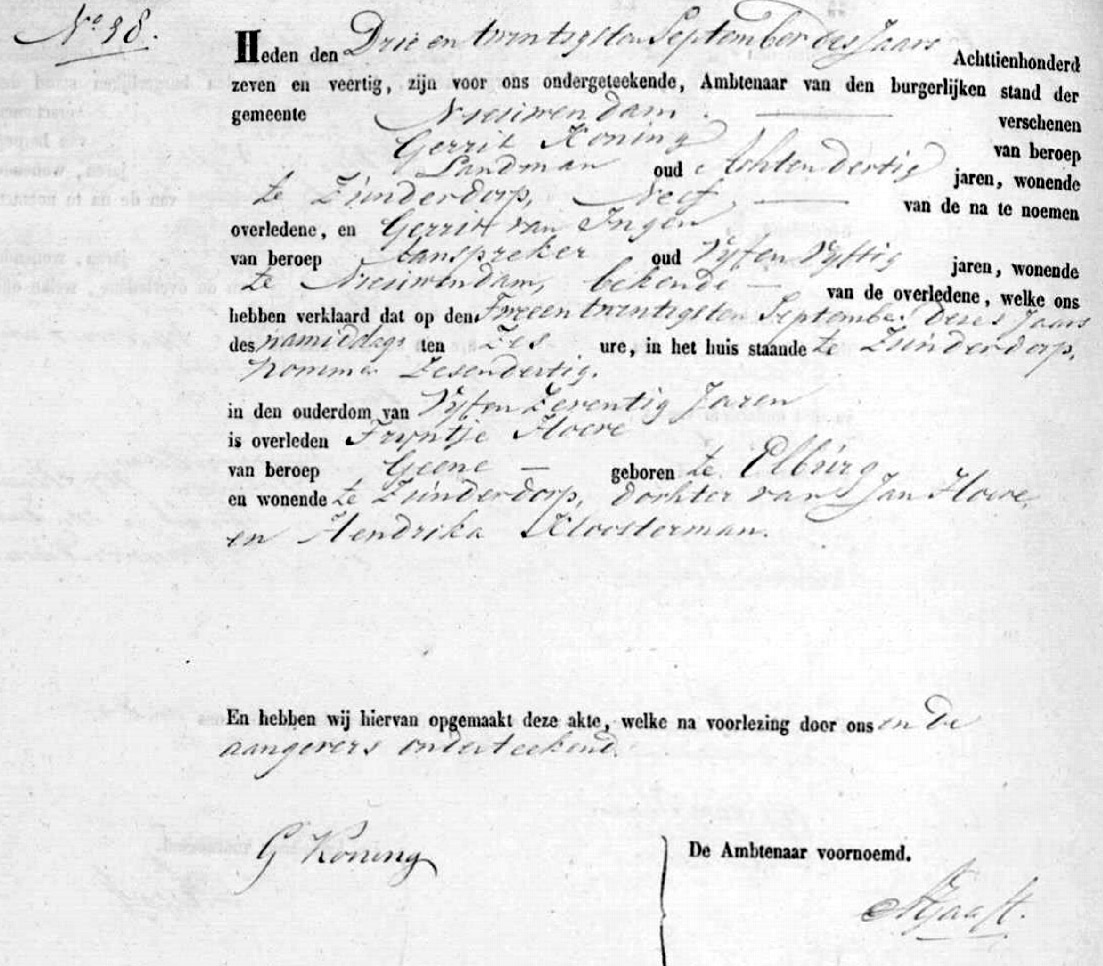 No. 38.
Heden den Drie en twintigsten September des Jaars Achttienhonderd
zeven en veertig, zijn voor ons ondergeteekende, Ambtenaar van den burgerlijken stand der
gemeente Nieuwendam. verschenen
Gerrit Koning van beroep
Landman oud Achtendertig jaren, wonende
te Zunderdorp, Neef, van de na te noemen
overledene, en Gerrit van Ingen
van beroep Aanspreker oud Vyfen Vyftig jaren, wonende
te Nieuwendam, bekende van de overledene, welke ons
hebben verklaard dat op den Tweeentwintigsten September dezes Jaars
des namiddags ten Zes ure, in het huis staande te Zunderdorp,
Nommer Zesendertig.
in den ouderdom van Vyfen Zeventig Jaren
is overleden Tryntje Hoeve
van beroep Geene geboren te Elburg
en wonende te Zunderdorp, dochter van Jan Hoeve,
en Hendrika Kloosterman.
En hebben wij hiervan opgemaakt deze akte, welke na voorlezing door ons en de
aangevers onderteekend.
G Koning
De Ambtenaar voornoemd.